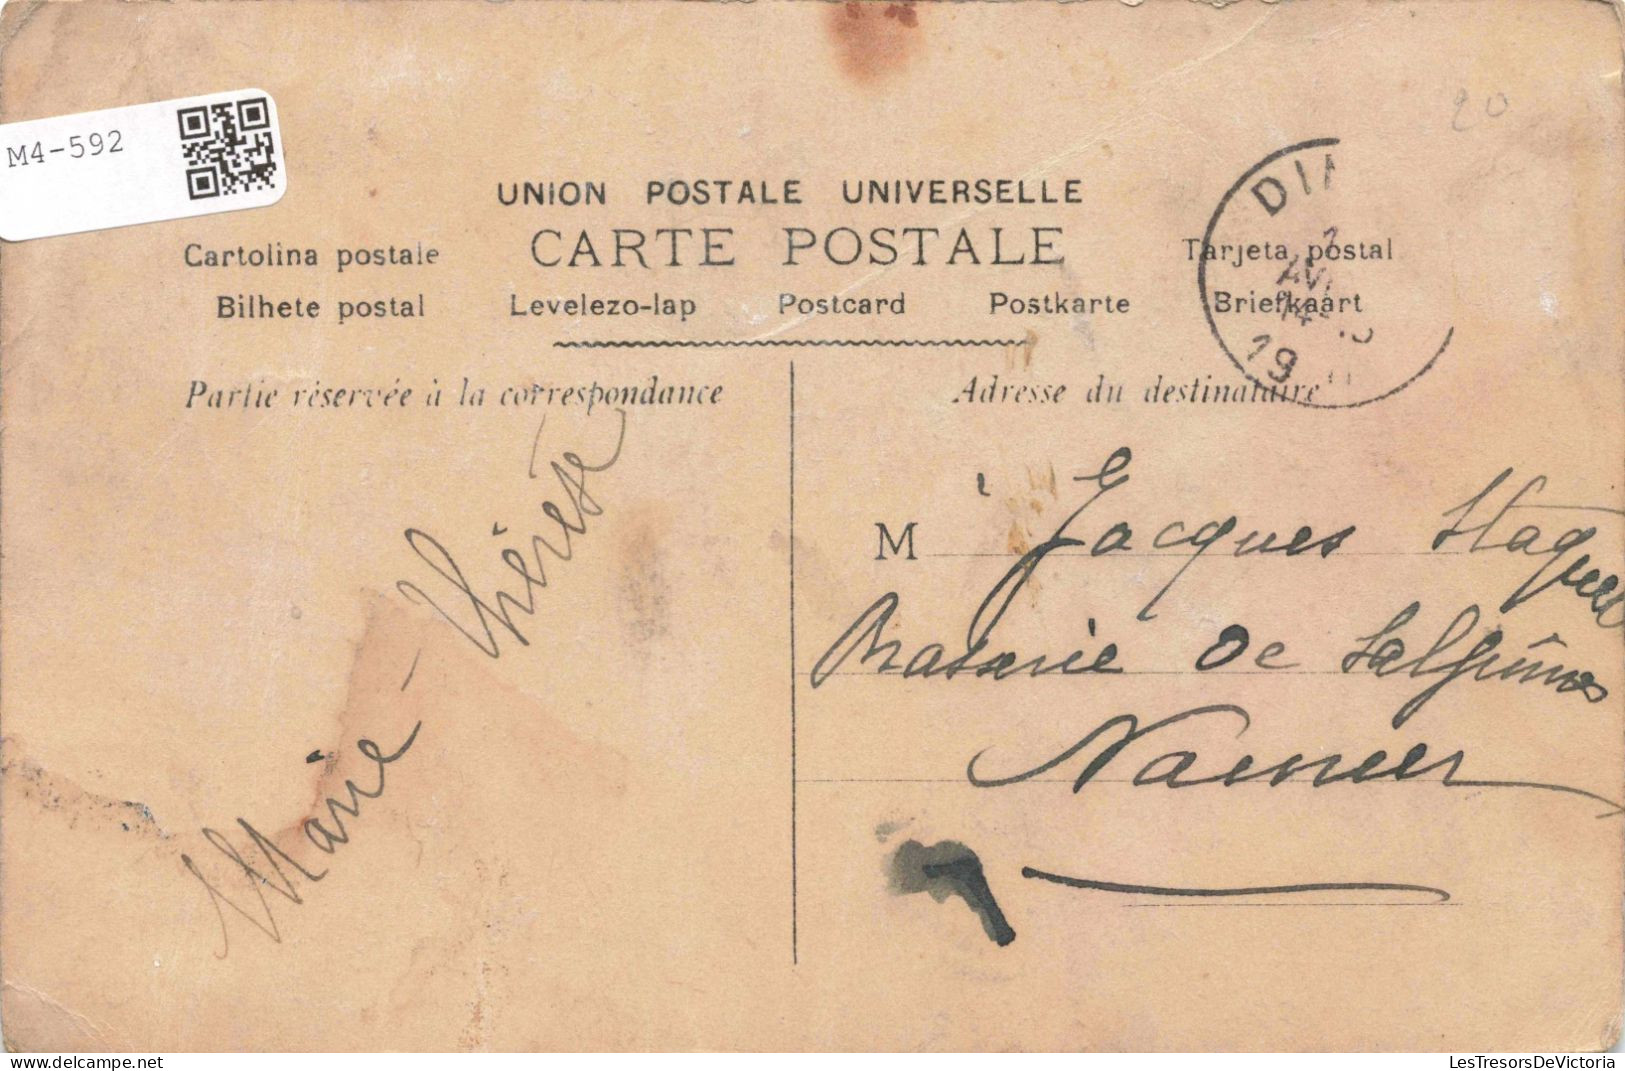 M4-592
20
UNION POSTALE UNIVERSELLE
CARTE POSTALE
Cartolina postale
Tarjeta postal
Bilhete postal
Levelezo-lap
Postcard
Postkarte
Briefkaart
DIN
19
Partie réservée à la correspondance
Adresse du destinataire
Marie-Thérèse
M Jacques
Brasserie de Salzinnes
Namur
LesTresorsDeVictoria